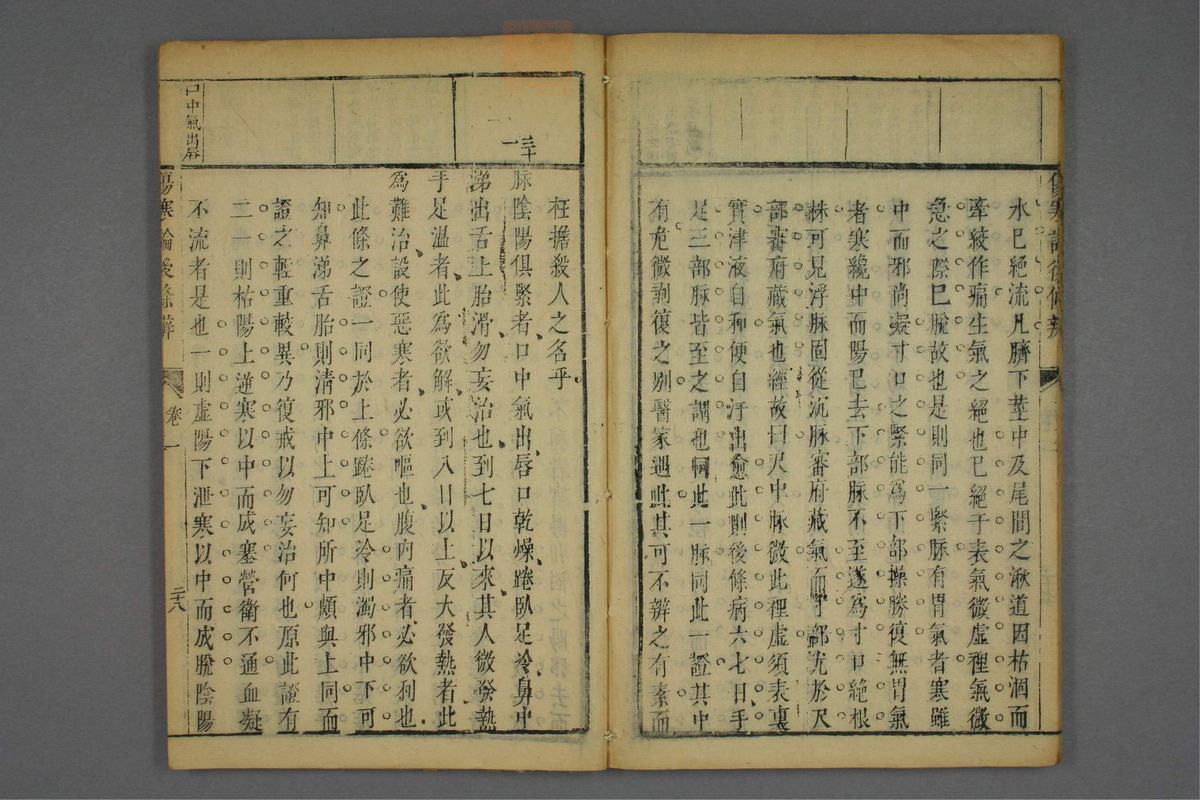 水已絕流凡臍下莖中及尾閭之湫道因枯涸而
牽絞作痛生氣之絕也已絕于表氣微虛裡氣微
急之際已脫故也是則同一緊脉有胃氣者寒雖
中而邪尚凝寸口之緊能爲下部操勝復無胃氣
者寒纔中而陽已去下部脉不至遂爲寸口絕根
株可見浮脉固從沉脉審府藏氣而寸部尤於尺
部審府藏氣也經故曰尺中脉微此裡虛須表裏
實津液自和便自汗出愈此則後條病六七日手
足三部脉皆至之謂也同此一脉同此一證其中
有危微剥復之别醫家遇此其可不辨之有素而
三十一
枉擔殺人之名乎
脉陰陽俱緊者口中氣出唇口乾燥踡臥足冷鼻中
涕出舌上胎滑勿妄治也到七日以來其人微發熱
手足温者此爲欲解或到八日以上反大發熱者此
爲難治設使惡寒者必欲嘔也腹內痛者必欲利也
此條之證一同於上條踡臥足冷則濁邪中下可
知鼻涕舌胎則清邪中上可知所中頗與上同而
證之輕重較異乃復戒以勿妄治何也原此證有
二一則枯陽上逆寒以中而成塞營衛不通血凝
不流者是也一則虛陽下泄寒以中而成脫陰陽
口中氣出唇
傷寒論後條辨
卷一
二十八